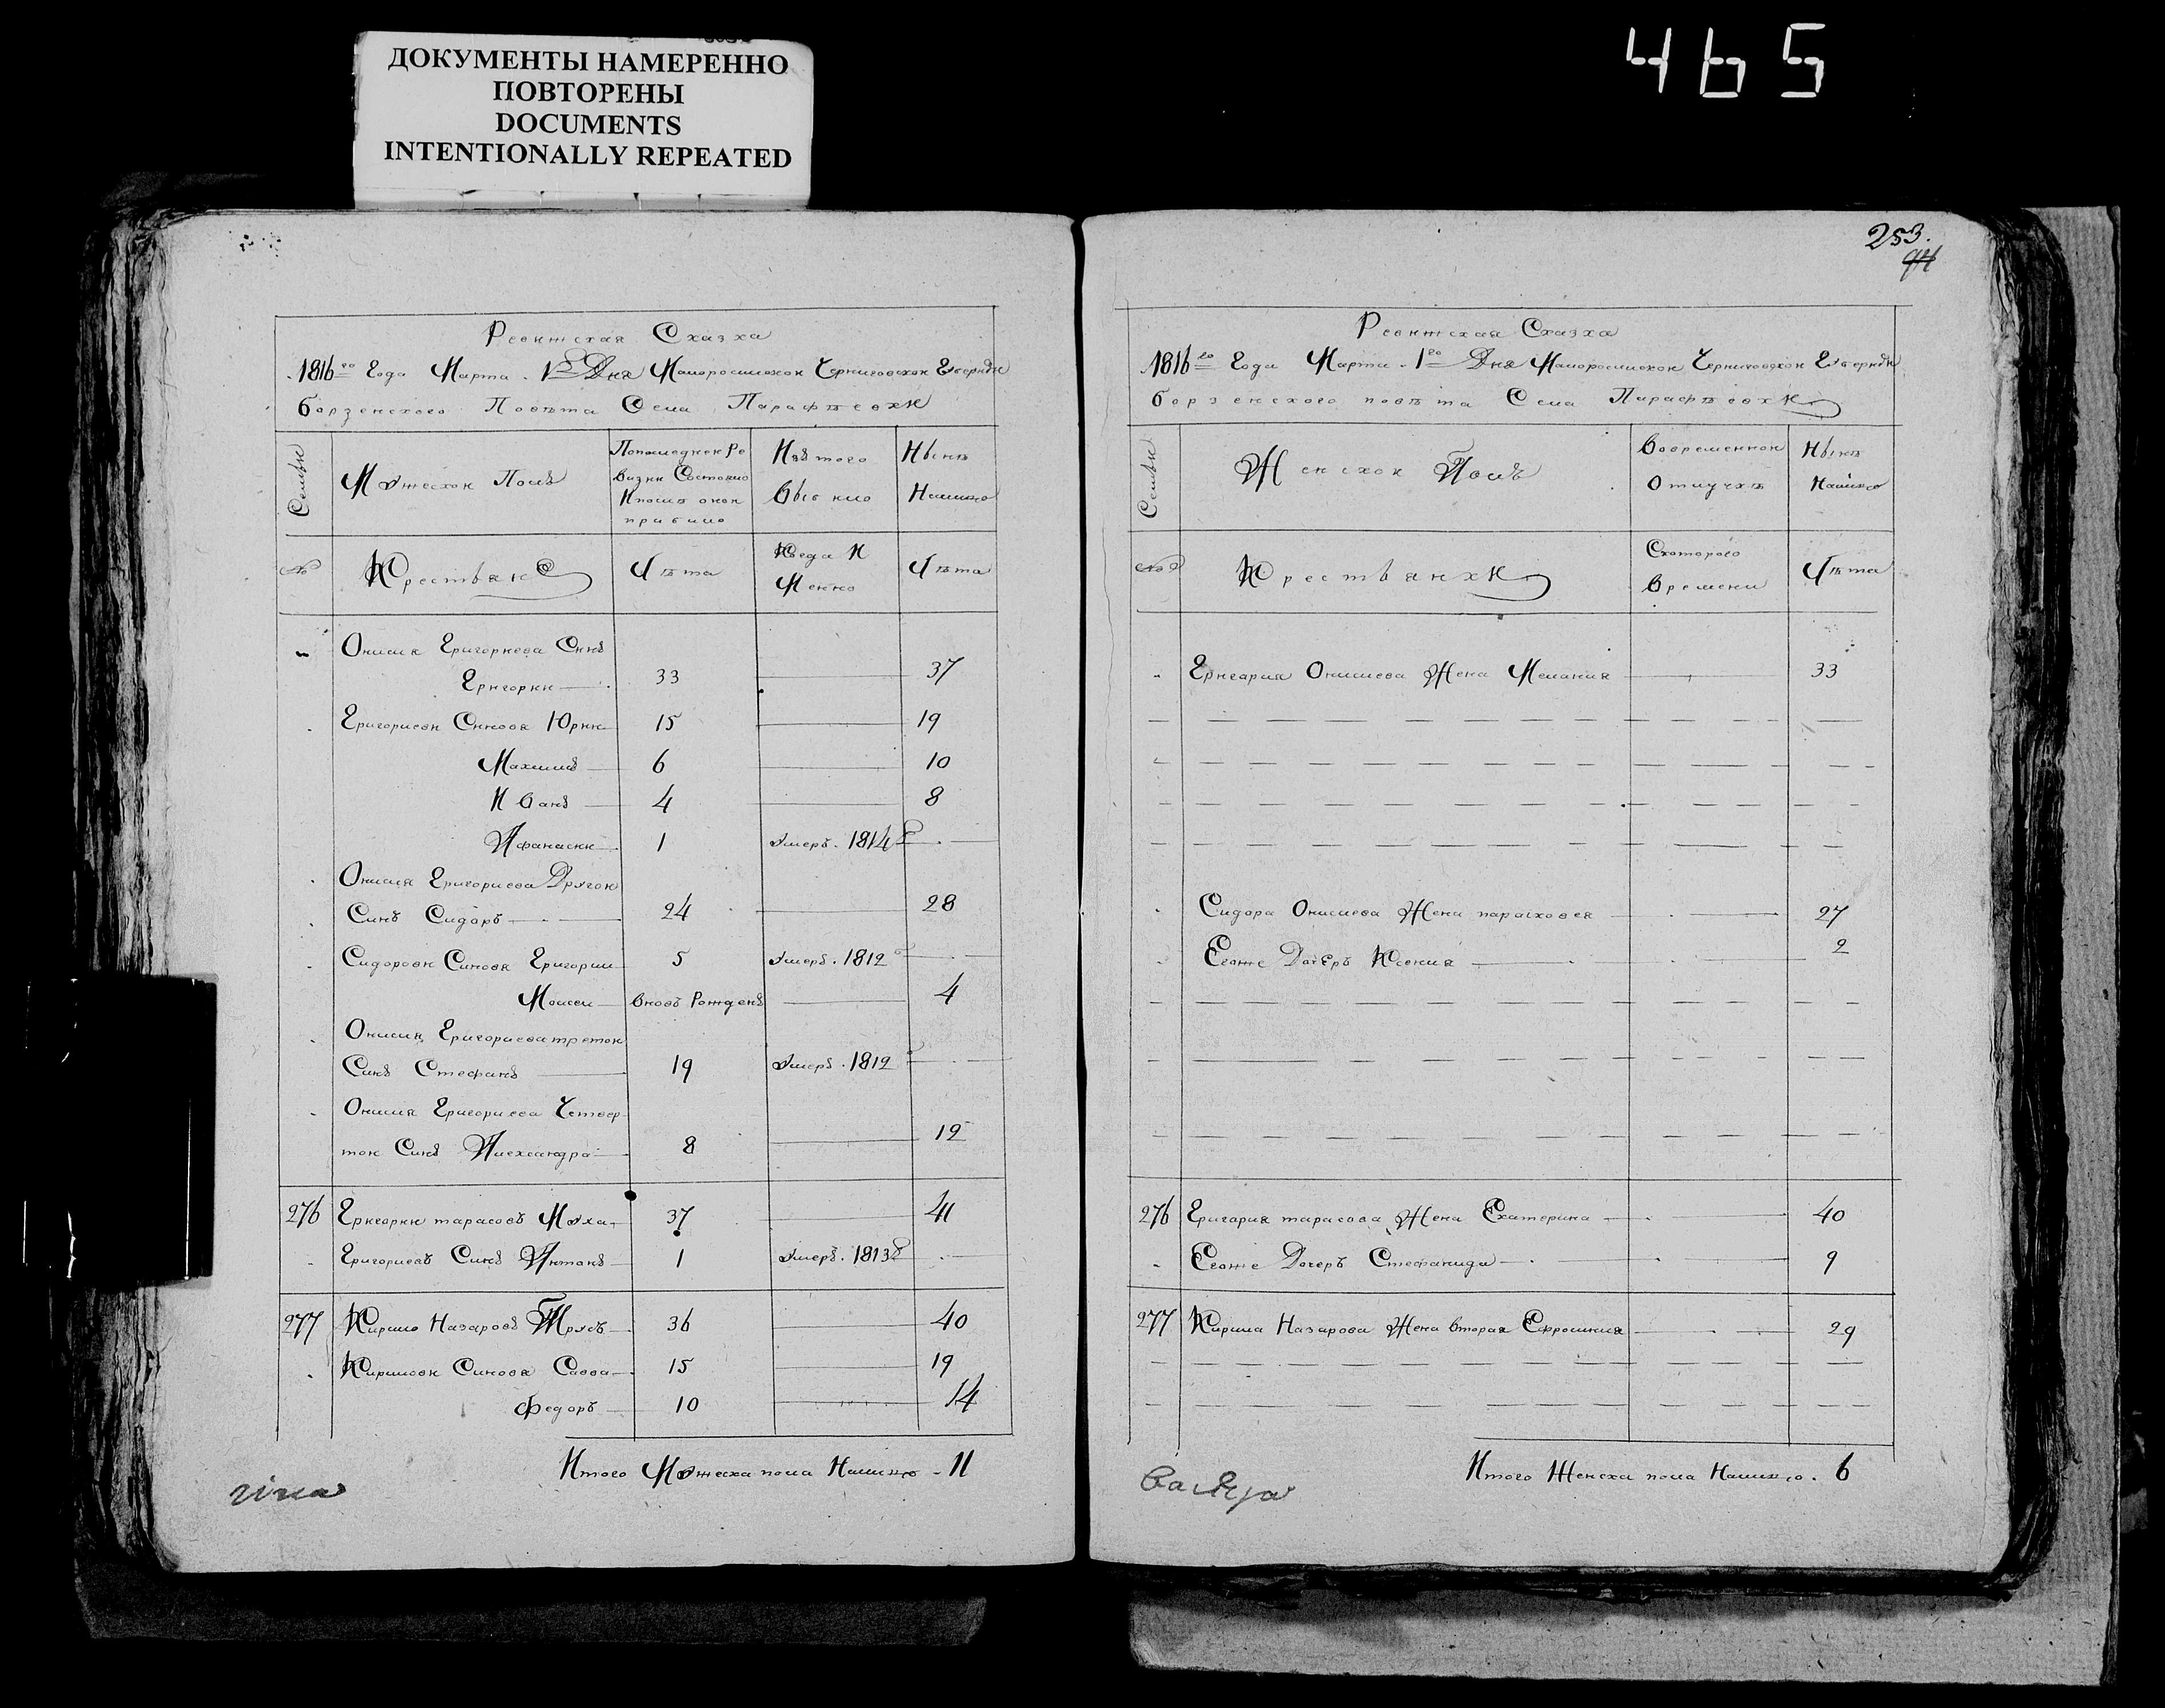 ДОКУМЕНТЫ НАМЕРЕННО
ПОВТОРЕНЫ
DOCUMENTS
INTENTIONALLY REPEATED
465
Ревижская Сказка
1816го Года Марта 1го Дня Малоросийской Черниговской Губернии
борзенского Повѣта Села Парафѣевки
Семьи
Мужеской Полъ
Попоследней Ре
визии Состояло
Ипослѣ оной
прибыло
Изъ того
Выбыло
Нынѣ
Налицо
№
Крестьяне
Лѣта
Когда И
Менно
Лѣта
Онисия Григориева Синъ
Григорий 33 37
Григориеви Синовя Юрий 15 19
Махимъ 6 10
Иванъ 4 8
Афанасий 1 умеръ. 1814
Онисия Григориева Другой
Синъ Сидоръ 24 28
Сидорови Синовя Григорий 5 умеръ. 1812
Моисей вновъ Рожденъ 4
Онисия Григориева третой
Синъ Стефанъ 19 умеръ. 1812
Онисия Григориева Четвер
той Синъ Александра 8 12
276 Григорий тарасовъ Муха 37 41
Григориевъ Синъ Антонъ 1 умеръ. 1813
277 Кирило Назаровъ Трусъ 36 40
Кирилови Синовя Савва 15 19
Федоръ 10 14
Итого Мужеска пола Налицо 11
253.
94
Ревижская Сказка
1816го Года Марта 1го Дня Малоросийской Черниговской Губернии
борзенского повѣта Села Парафѣевки
Семьи
Женской Полъ
Вовременной
Отлучкѣ
Нынѣ
Налицо
№
Крестьянки
Скоторого
Времени
Лѣта
Григория Онисиева Жена Мелания 33
Сидора Онисиева Жена парасковея 27
Егоже Дочеръ Ксения 2
276 Григория тарасова Жена Екатерина 40
Егоже Дочеръ Стефанида 9
277 Кирила Назарова Жена вторая Ефросиния 29
Итого Женска пола Налицо. 6